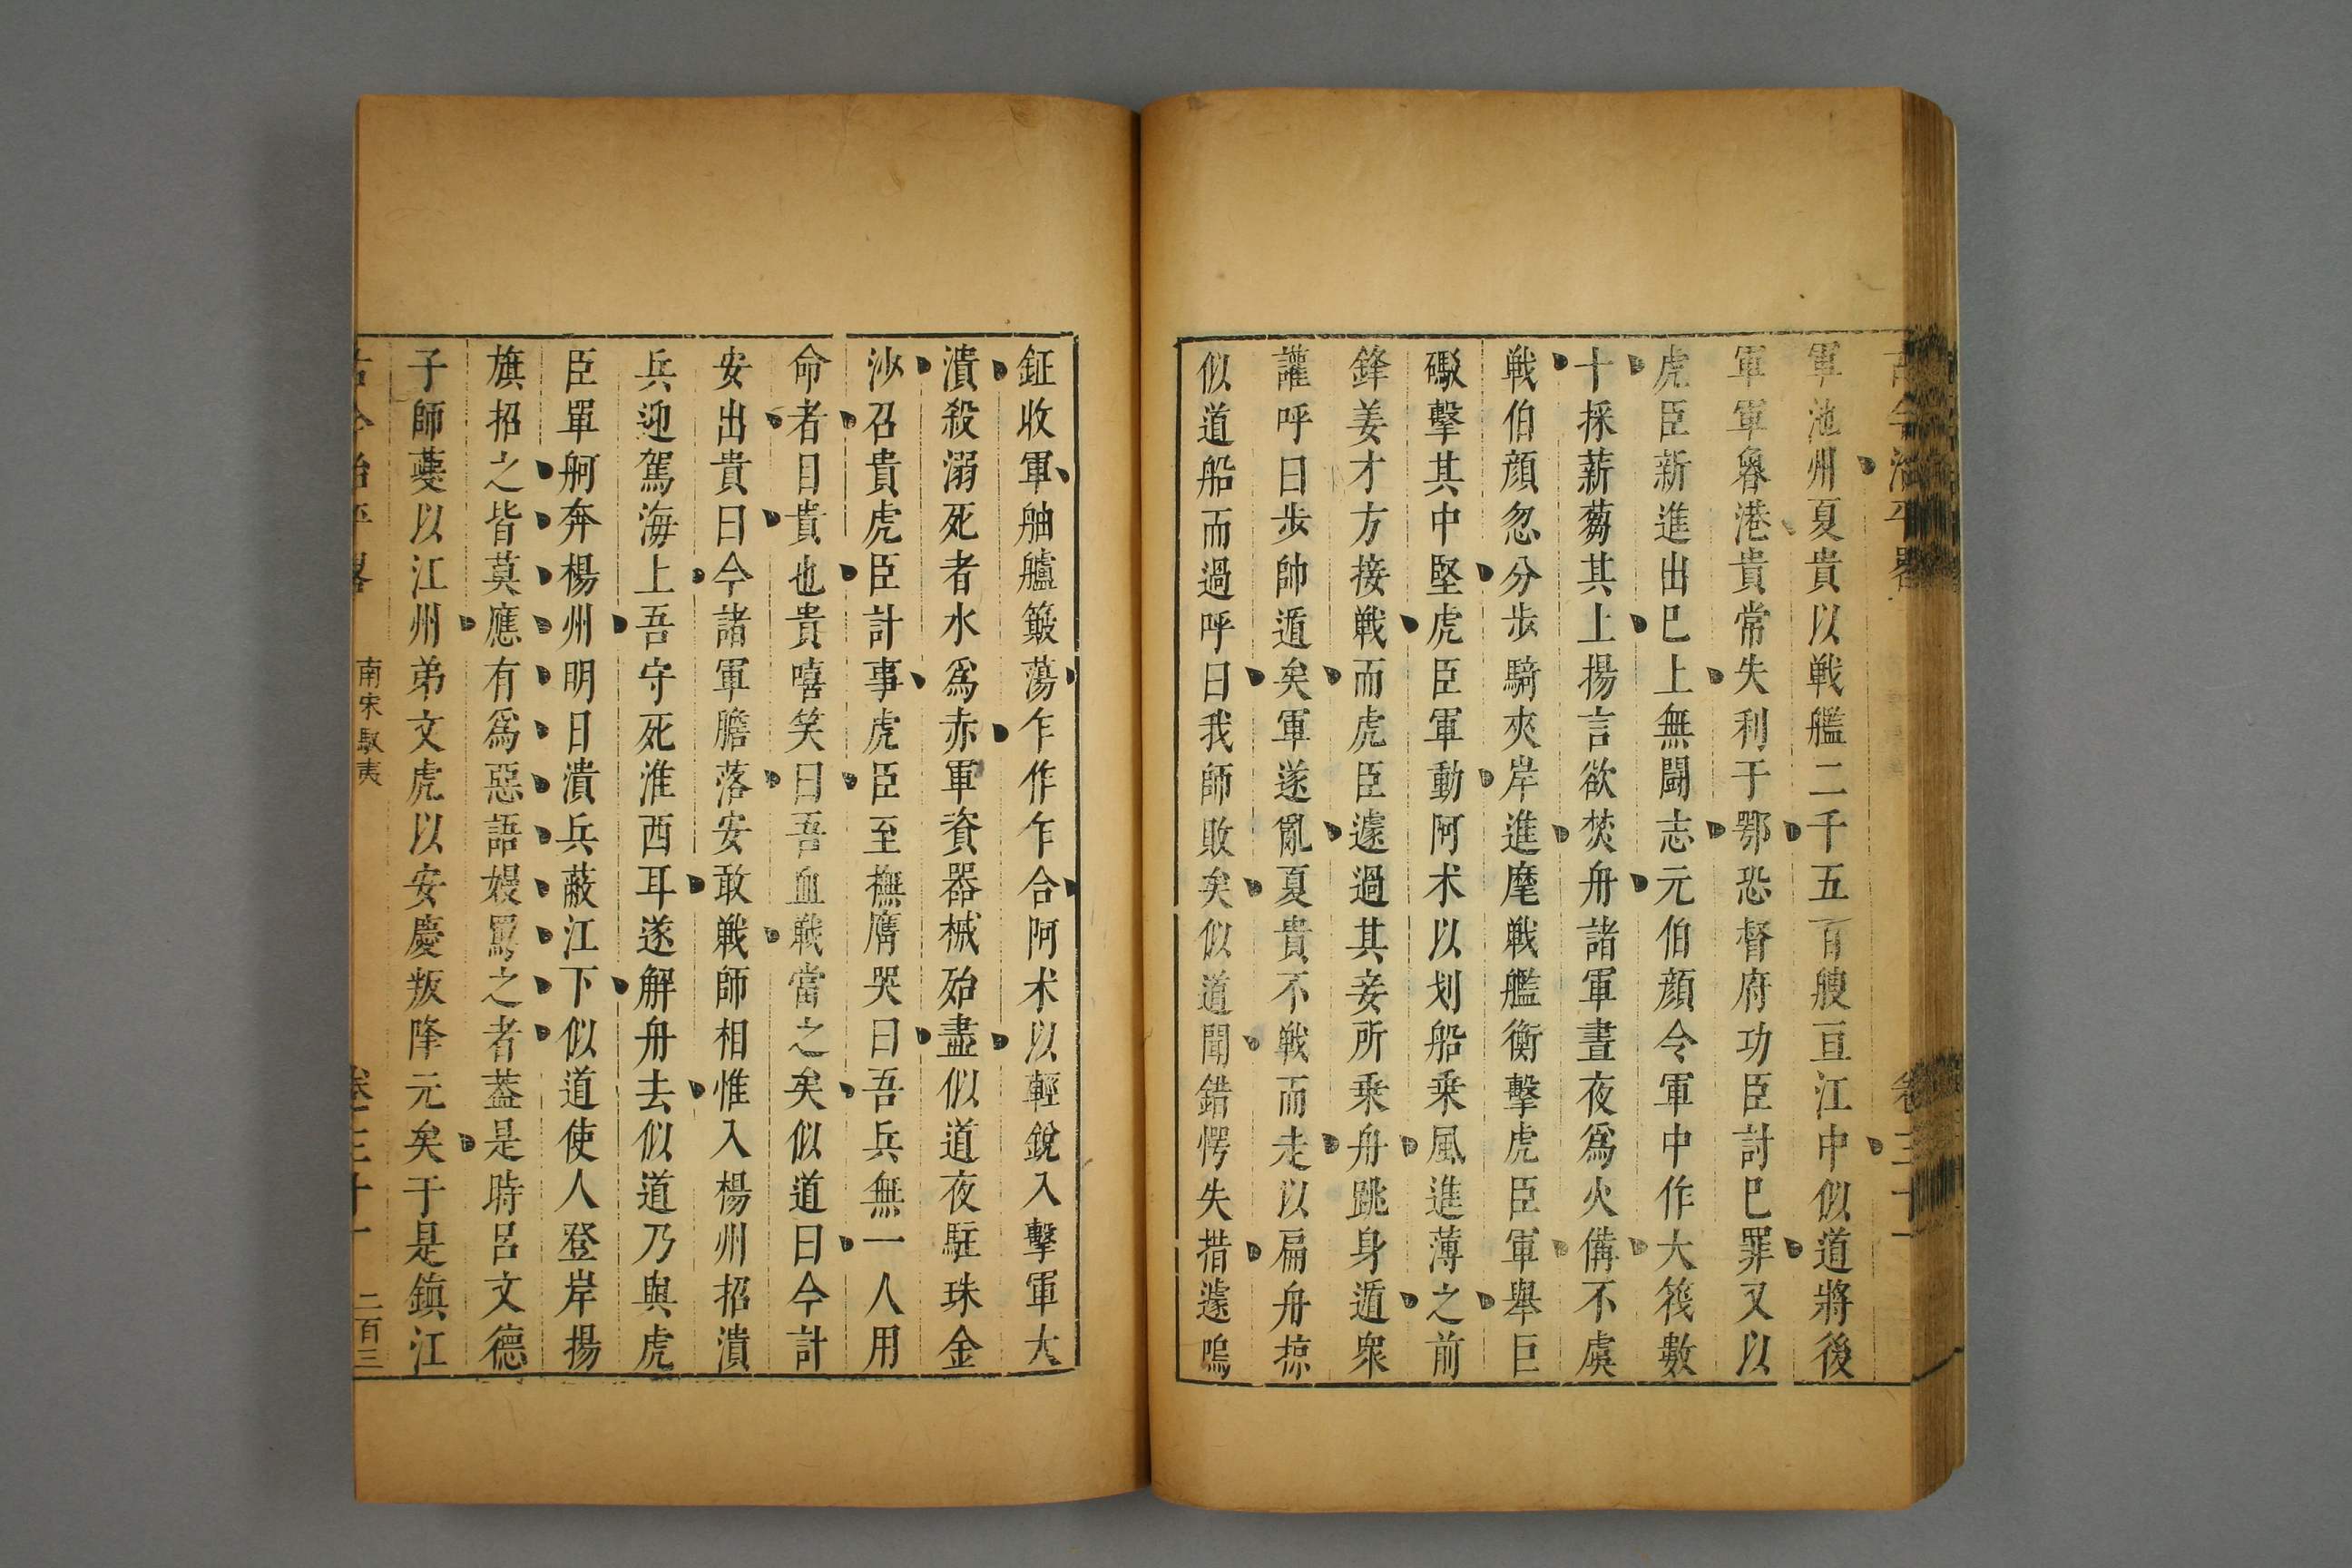 古今治平畧 卷三十一
軍池州夏貴以戦艦二千五百艘亘江中似道將後
軍軍魯港貴常失利于鄂恐督府功臣討巳罪又以
虎臣新進出巳上無闘志元伯顔令軍中作大筏數
十採薪蒭其上揚言欲焚舟諸軍晝夜爲火備不虞
戦伯顔忽分步騎夾岸進麾戦艦衡擊虎臣軍舉巨
礮擊其中堅虎臣軍動阿术以划船乘風進薄之前
鋒姜才方接戦而虎臣遽過其妾所乘舟跳身遁衆
讙呼曰步帥遁矣軍遂亂夏貴不戦而走以扁舟掠
似道船而過呼曰我師敗矣似道聞錯愕失措遽鳴
鉦收軍舳艫簸蕩乍作乍合阿术以輕銳入擊軍大
潰殺溺死者水爲赤軍資器械殆盡似道夜駐珠金
沙召貴虎臣計事虎臣至撫膺哭曰吾兵無一人用
命者目貴也貴嘻笑曰吾血戦當之矣似道曰今計
安出貴曰今諸軍膽落安敢戦師相惟入楊州招潰
兵迎駕海上吾守死淮西耳遂解舟去似道乃與虎
臣單舸奔楊州明日潰兵蔽江下似道使人登岸揚
旗招之皆莫應有爲惡語嫚罵之者葢是時呂文德
子師夔以江州弟文虎以安慶叛降元矣于是鎮江
古今治平畧 南宋馭夷 卷三十一 二百三